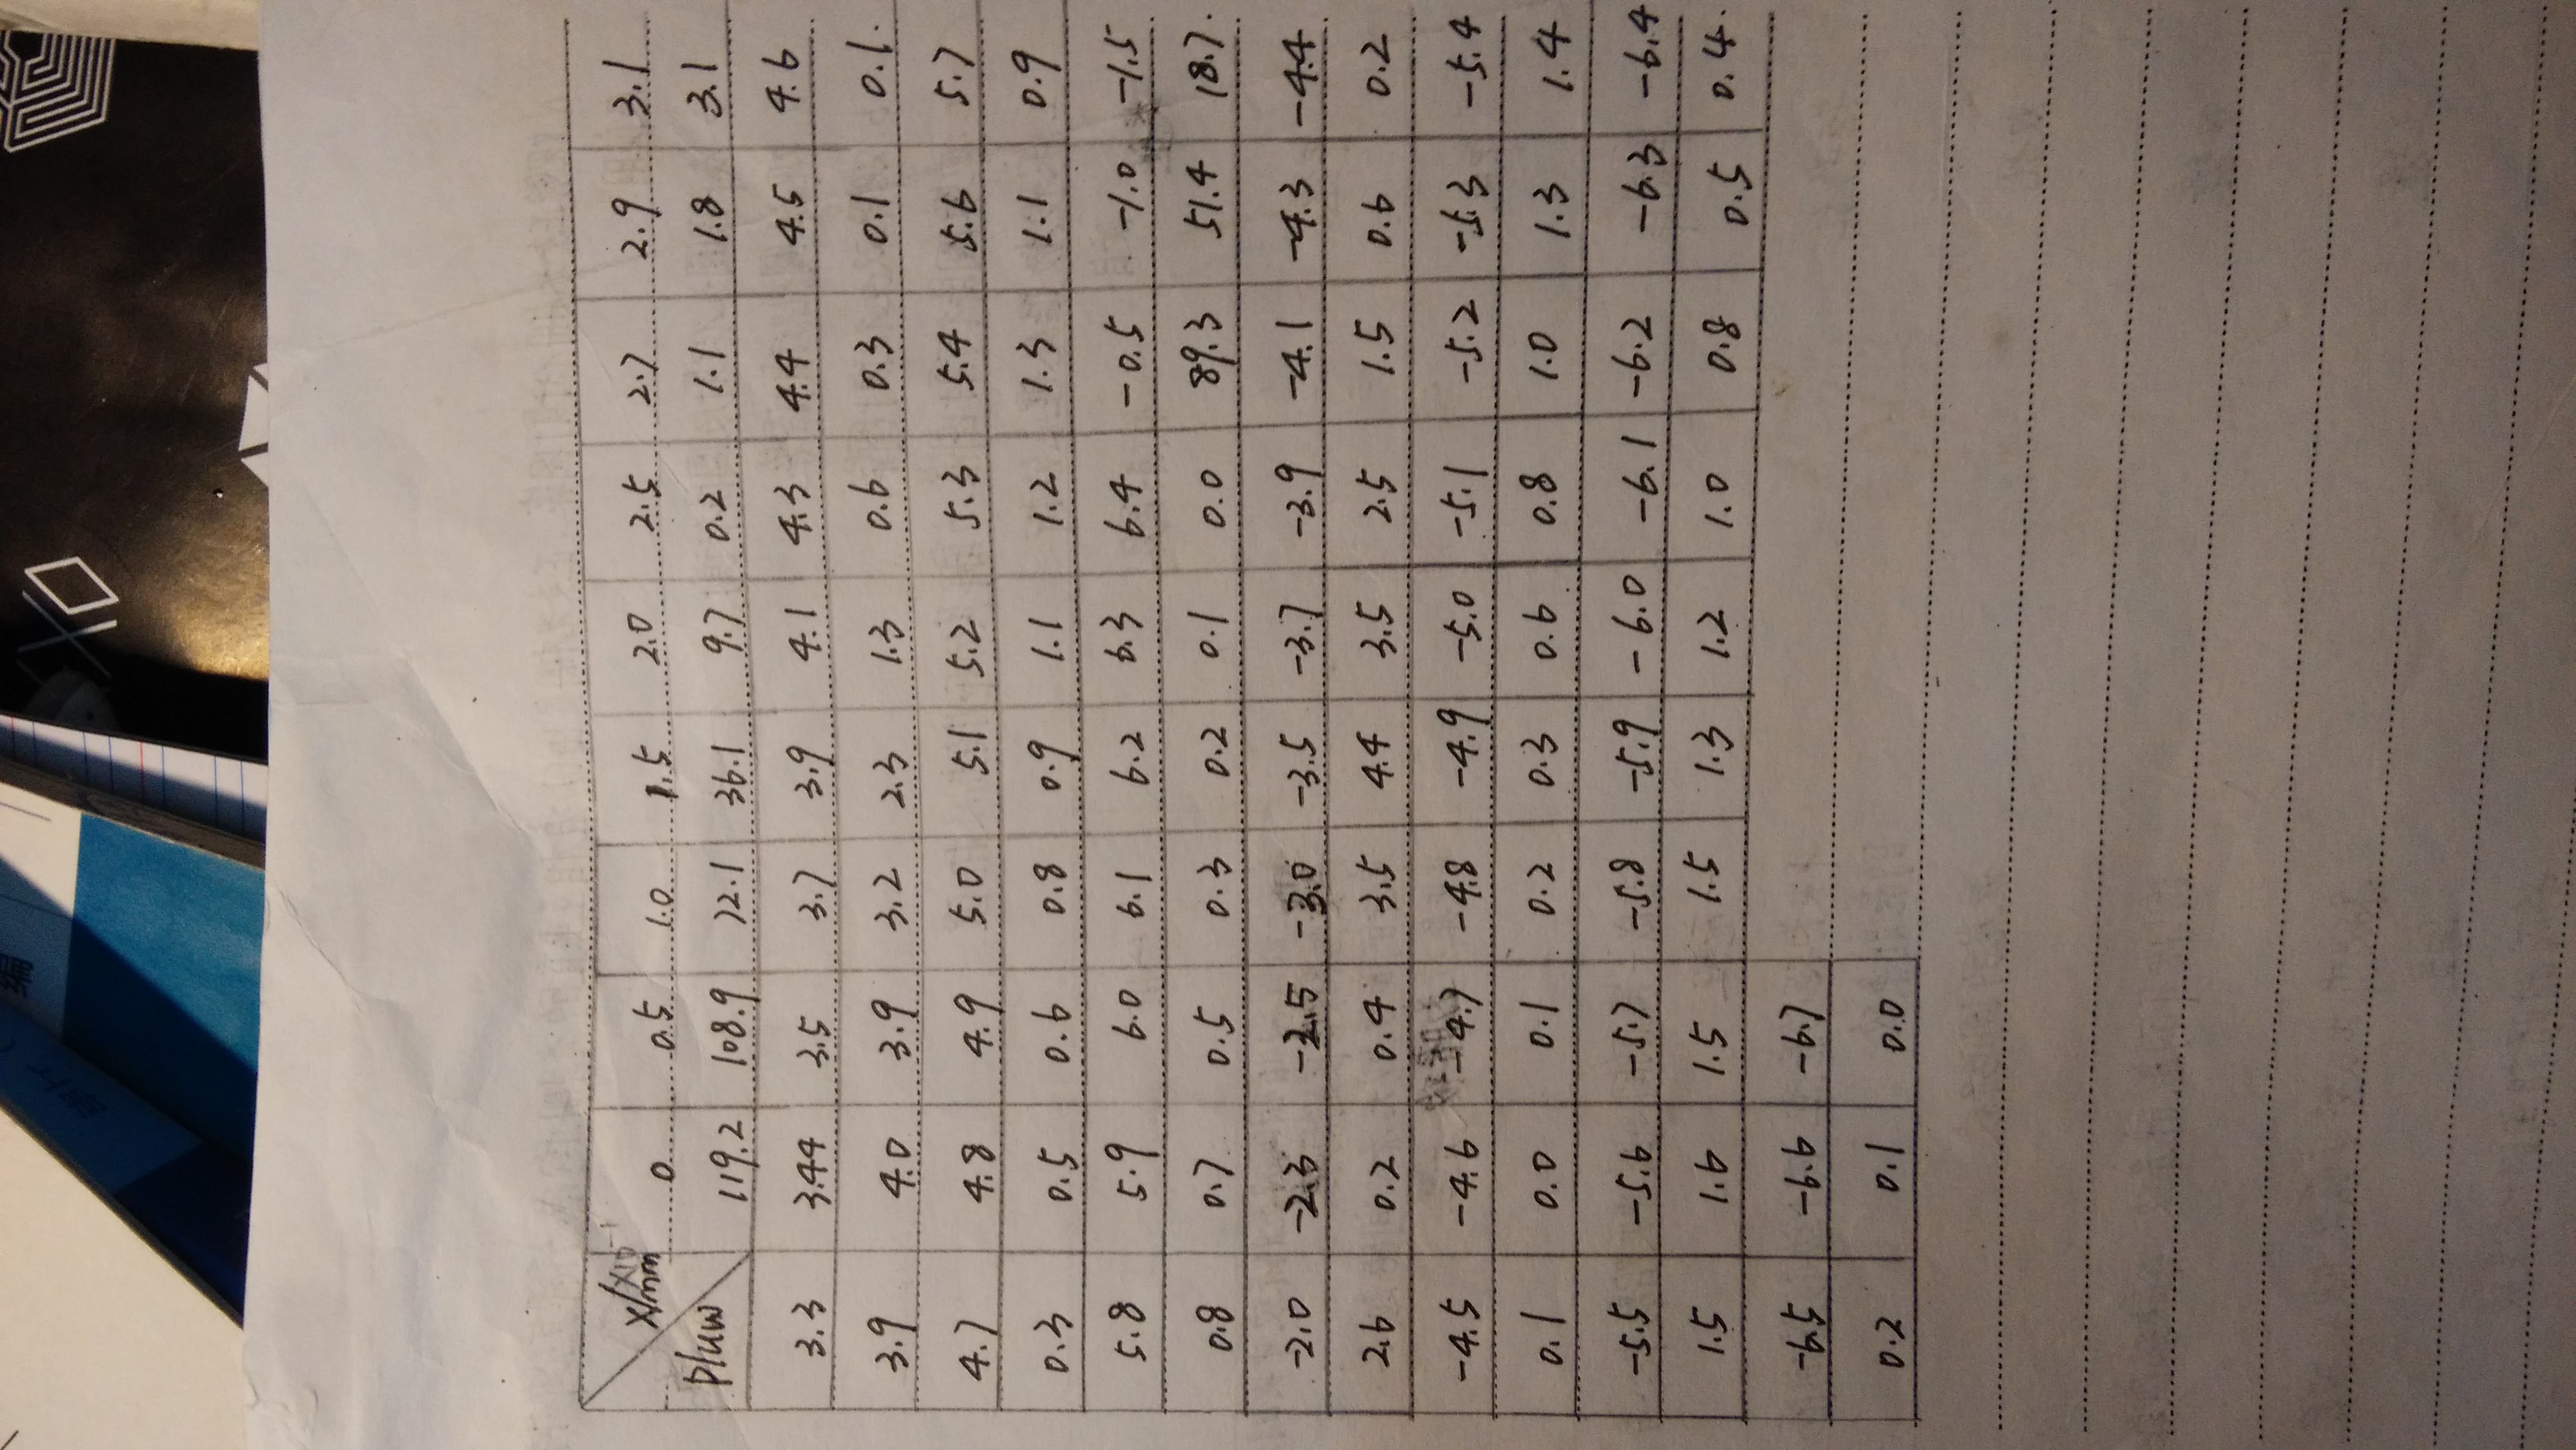 X/mm ×10⁻¹ 0 0.5 1.0 1.5 2.0 2.5 2.7 2.9 3.1
P/uw 119.2 108.9 72.1 36.1 9.7 0.2 1.1 1.8 3.1
3.3 3.44 3.5 3.7 3.9 4.1 4.3 4.4 4.5 4.6
3.9 4.0 3.9 3.2 2.3 1.3 0.6 0.3 0.1 0.1.
4.7 4.8 4.9 5.0 5.1 5.2 5.3 5.4 5.6 5.7
0.3 0.5 0.6 0.8 0.9 1.1 1.2 1.3 1.1 0.9
5.8 5.9 6.0 6.1 6.2 6.3 6.4 -0.5 -1.0 -1.5
0.8 0.7 0.5 0.3 0.2 0.1 0.0 89.3 51.4 18.7.
-2.0 -2.3 -2.5 -3.0 -3.5 -3.7 -3.9 -4.1 -4.3 -4.4
2.6 0.2 0.4 3.5 4.4 3.5 2.5 1.5 0.6 0.2
-4.5 -4.6 -4.7 -4.8 -4.9 -5.0 -5.1 -5.2 -5.3 -5.4
0.1 0.0 0.1 0.2 0.3 0.6 0.8 1.0 1.3 1.4
-5.5 -5.6 -5.7 -5.8 -5.9 -6.0 -6.1 -6.2 -6.3 -6.4
1.5 1.6 1.5 1.5 1.3 1.2 1.0 0.8 0.5 0.4.
-6.5 -6.6 -6.7
0.2 0.1 0.0